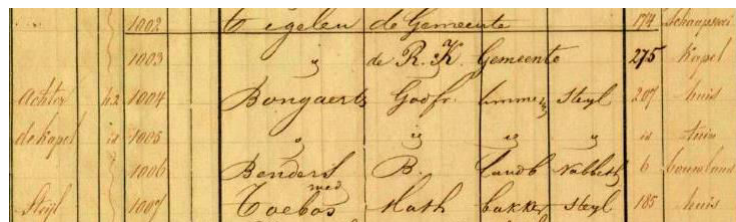 1002 Tegelen de Gemeente 174
1003 " de R. K. Gemeente 275 Kapel
Achter 1004 Bongaerts Godfr. timmerm Steyl 207 huis
de Kapel 1005 " " " " tuin
1006 Benders B. Landb 6 bouwland
Steijl 1007 Toebos Math bakker Steyl 185 huis